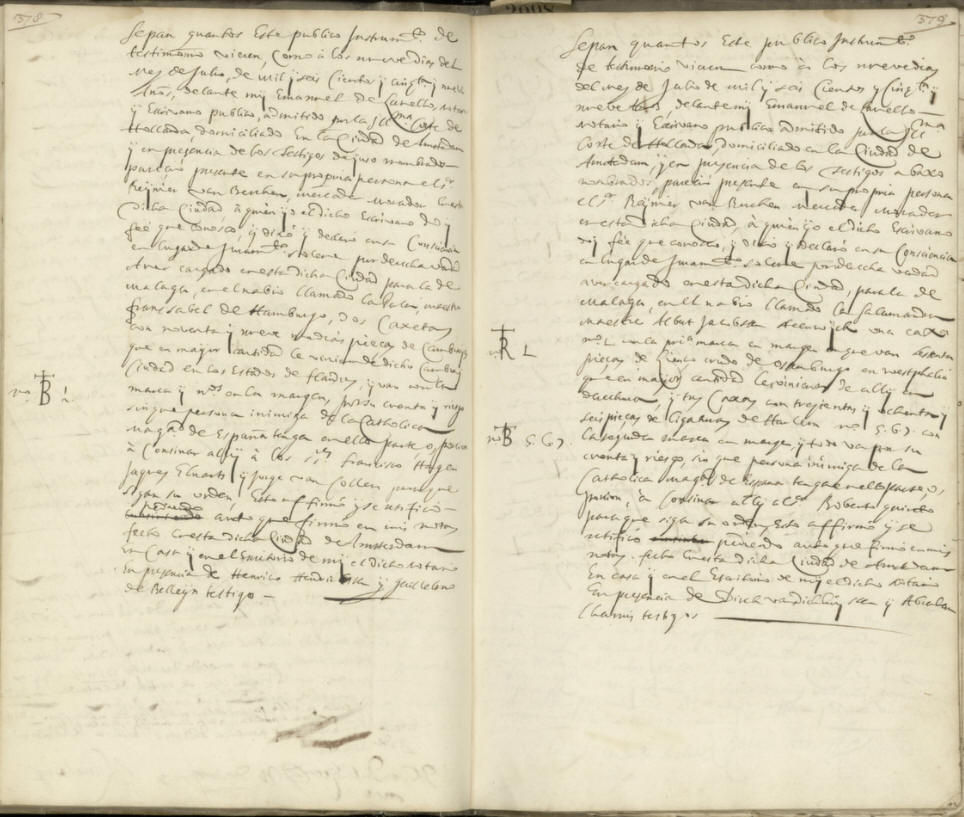 378
Sepan quantos Este publico Instrum.to de
testimonio vieren, Como à los nueve dias del
Mes de Julio, de mil y seis Cientos y cinq.ta y nueve
Años, delante my Emanuel de
ÿ Escrivano publico, admitido por la Ill.ma Corte de
Hollanda, domiciliado En la Ciudad de Amsterdam
ÿ en presencia de los testigos de yuso nombrados
parecio presente en su propria persona el s.r
Reynier van Berchem, mercader Morador En esta
Dicha Ciudad à quien yo el dicho Escrivano doy
feé que Conosco, ÿ dixo ÿ declaro en su Consciencia
en lugar de Juram.to solene por derecha verdad
Aver cargado en esta dicha Ciudad para la de
Malaga, en el nabio llamado maestre
de Hamburgo, dos Caxetas
con noventa ÿ nueve medias pieças de Cambrays
que en mayor Cantidad le vinieron de dicho Cambray
Ciudad en los Estados de flandes, ÿ van con la
marca ÿ n.os en la margen, por su cuenta ÿ riesgo
sin que persona inimiga de la Catholica
Mag.d de España tenga en ello parte o, porcion
à Consinar allÿ à los s.res francisco
Jaques ÿ Jorge van Collen para que
Sigan su orden, Esto affirmó ÿ se ratificó
pidiendo auto que firmó en mis notas
fecho en esta dicha Ciudad de Amsterdam
En Casa ÿ en el Escritorio de mÿ el dicho Notario
En presencia de Henrico ÿ Guillelmo
de testigo —
n.o B 1
2
379
Sepan quantos Este publico Instrum.to
de testimonio vieren como à los nueve dias
del mes de Julio de mil ÿ seis Cientos ÿ Cinq.ta ÿ
nueve delante mÿ Emanuel de
Notario ÿ Escrivano publico admitido por la Ill.ma
Corte de Hollanda, Domiciliado en la Ciudad de
Amsterdam, ÿ en presencia de los testigos abaxo
nombrados, parecio presente en su propria persona
el s.r Reÿnier van Berchem Mercader Morador
en esta dicha Ciudad, à quien ÿo el dicho Escrivano
doÿ feé que conosco, ÿ dixo ÿ declaró en su Consciencia
en lugar de Juram.to solene por derecha verdad
aver cargado en esta dicha Ciudad, para la de
Malaga, en el nabio llamado la Salamandra
maestre Albert Jacobsen una caxa
n.o L con la pri.a marca en margen en que van sesenta
pieças de lienço crudo de osnaburgo en westphalia
que en maior Cantidad le vinieron de allÿ en
ÿ tres Caxas con trezientas ÿ ochenta ÿ
seis pieças de de Harlem n.o 5. 6. 7. con
la segunda marca en margen, ÿ todo va por su
cuenta ÿ riesgo, sin que persona inimiga de la
Catholica Mag.d de España tenga en ello parte o,
porcion, à Consinar allÿ al s.r Roberto
para que siga su orden, Esto affirmó ÿ se
ratificó pidiendo auto que firmó en mis
notas. fecho en esta dicha Ciudad de Amsterdam
En casa ÿ en el Escritorio de mÿ el dicho Notario
En presencia de ÿ Abraham
testigos
n.o R L
n.o B 5. 6. 7.